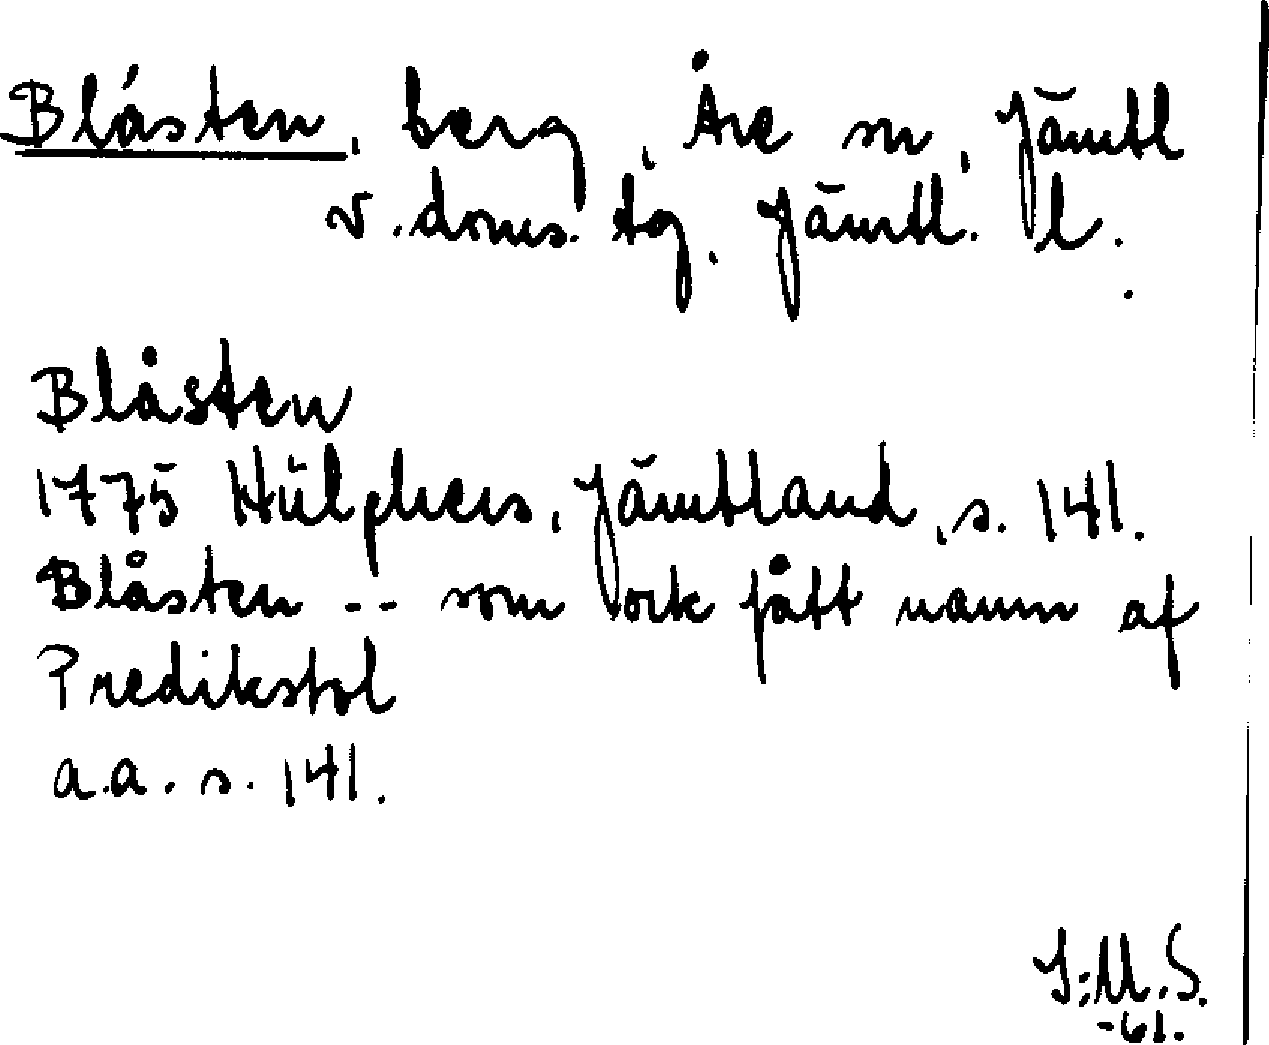 Blåsten, berg, Åre sn, Jämtl
v. doms. tg, Jämtl. l.
Blåsten
1775 Hülphers, Jämtland, s. 141.
Blåsten -- som ock fått namn af
Predikstol
a.a. s. 141.
I:M.S.
-61.